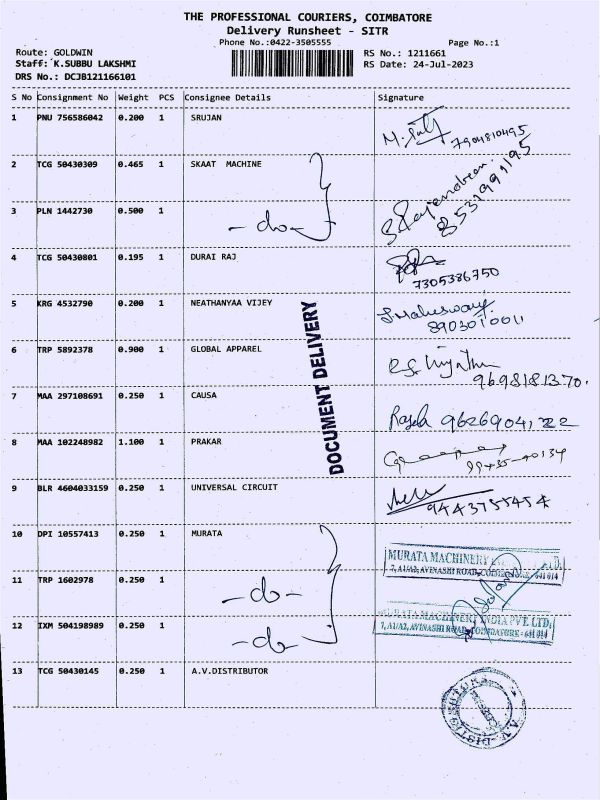 THE PROFESSIONAL COURIERS, COIMBATORE
Delivery Runsheet - SITR
Phone No.:0422-3505555 Page No.:1
Route: GOLDWIN RS No.: 1211661
Staff: K.SUBBU LAKSHMI RS Date: 24-Jul-2023
DRS No.: DCJB121166101
S No Consignment No Weight PCS Consignee Details Signature
1 PNU 756586042 0.200 1 SRUJAN 7904810495
2 TCG 50430309 0.465 1 SKAAT MACHINE
3 PLN 1442730 0.500 1 -do-
4 TCG 50430801 0.195 1 DURAI RAJ 7305386750
5 KRG 4532790 0.200 1 NEATHANYAA VIJEY 8903010011
6 TRP 5892378 0.900 1 GLOBAL APPAREL 9698181370.
7 MAA 297108691 0.250 1 CAUSA
8 MAA 102248982 1.100 1 PRAKAR
9 BLR 4604033159 0.250 1 UNIVERSAL CIRCUIT 9443755454
10 DPI 10557413 0.250 1 MURATA
11 TRP 1602978 0.250 1 -do-
12 IXM 504198989 0.250 1 -do-
13 TCG 50430145 0.250 1 A.V.DISTRIBUTOR
DOCUMENT DELIVERY
MURATA MACHINERY
7, A1/A2, AVINASHI ROAD, COIMBATORE - 641 014
MURATA MACHINERY INDIA PVT. LTD.
7, A1/A2, AVINASHI ROAD, COIMBATORE - 641 014